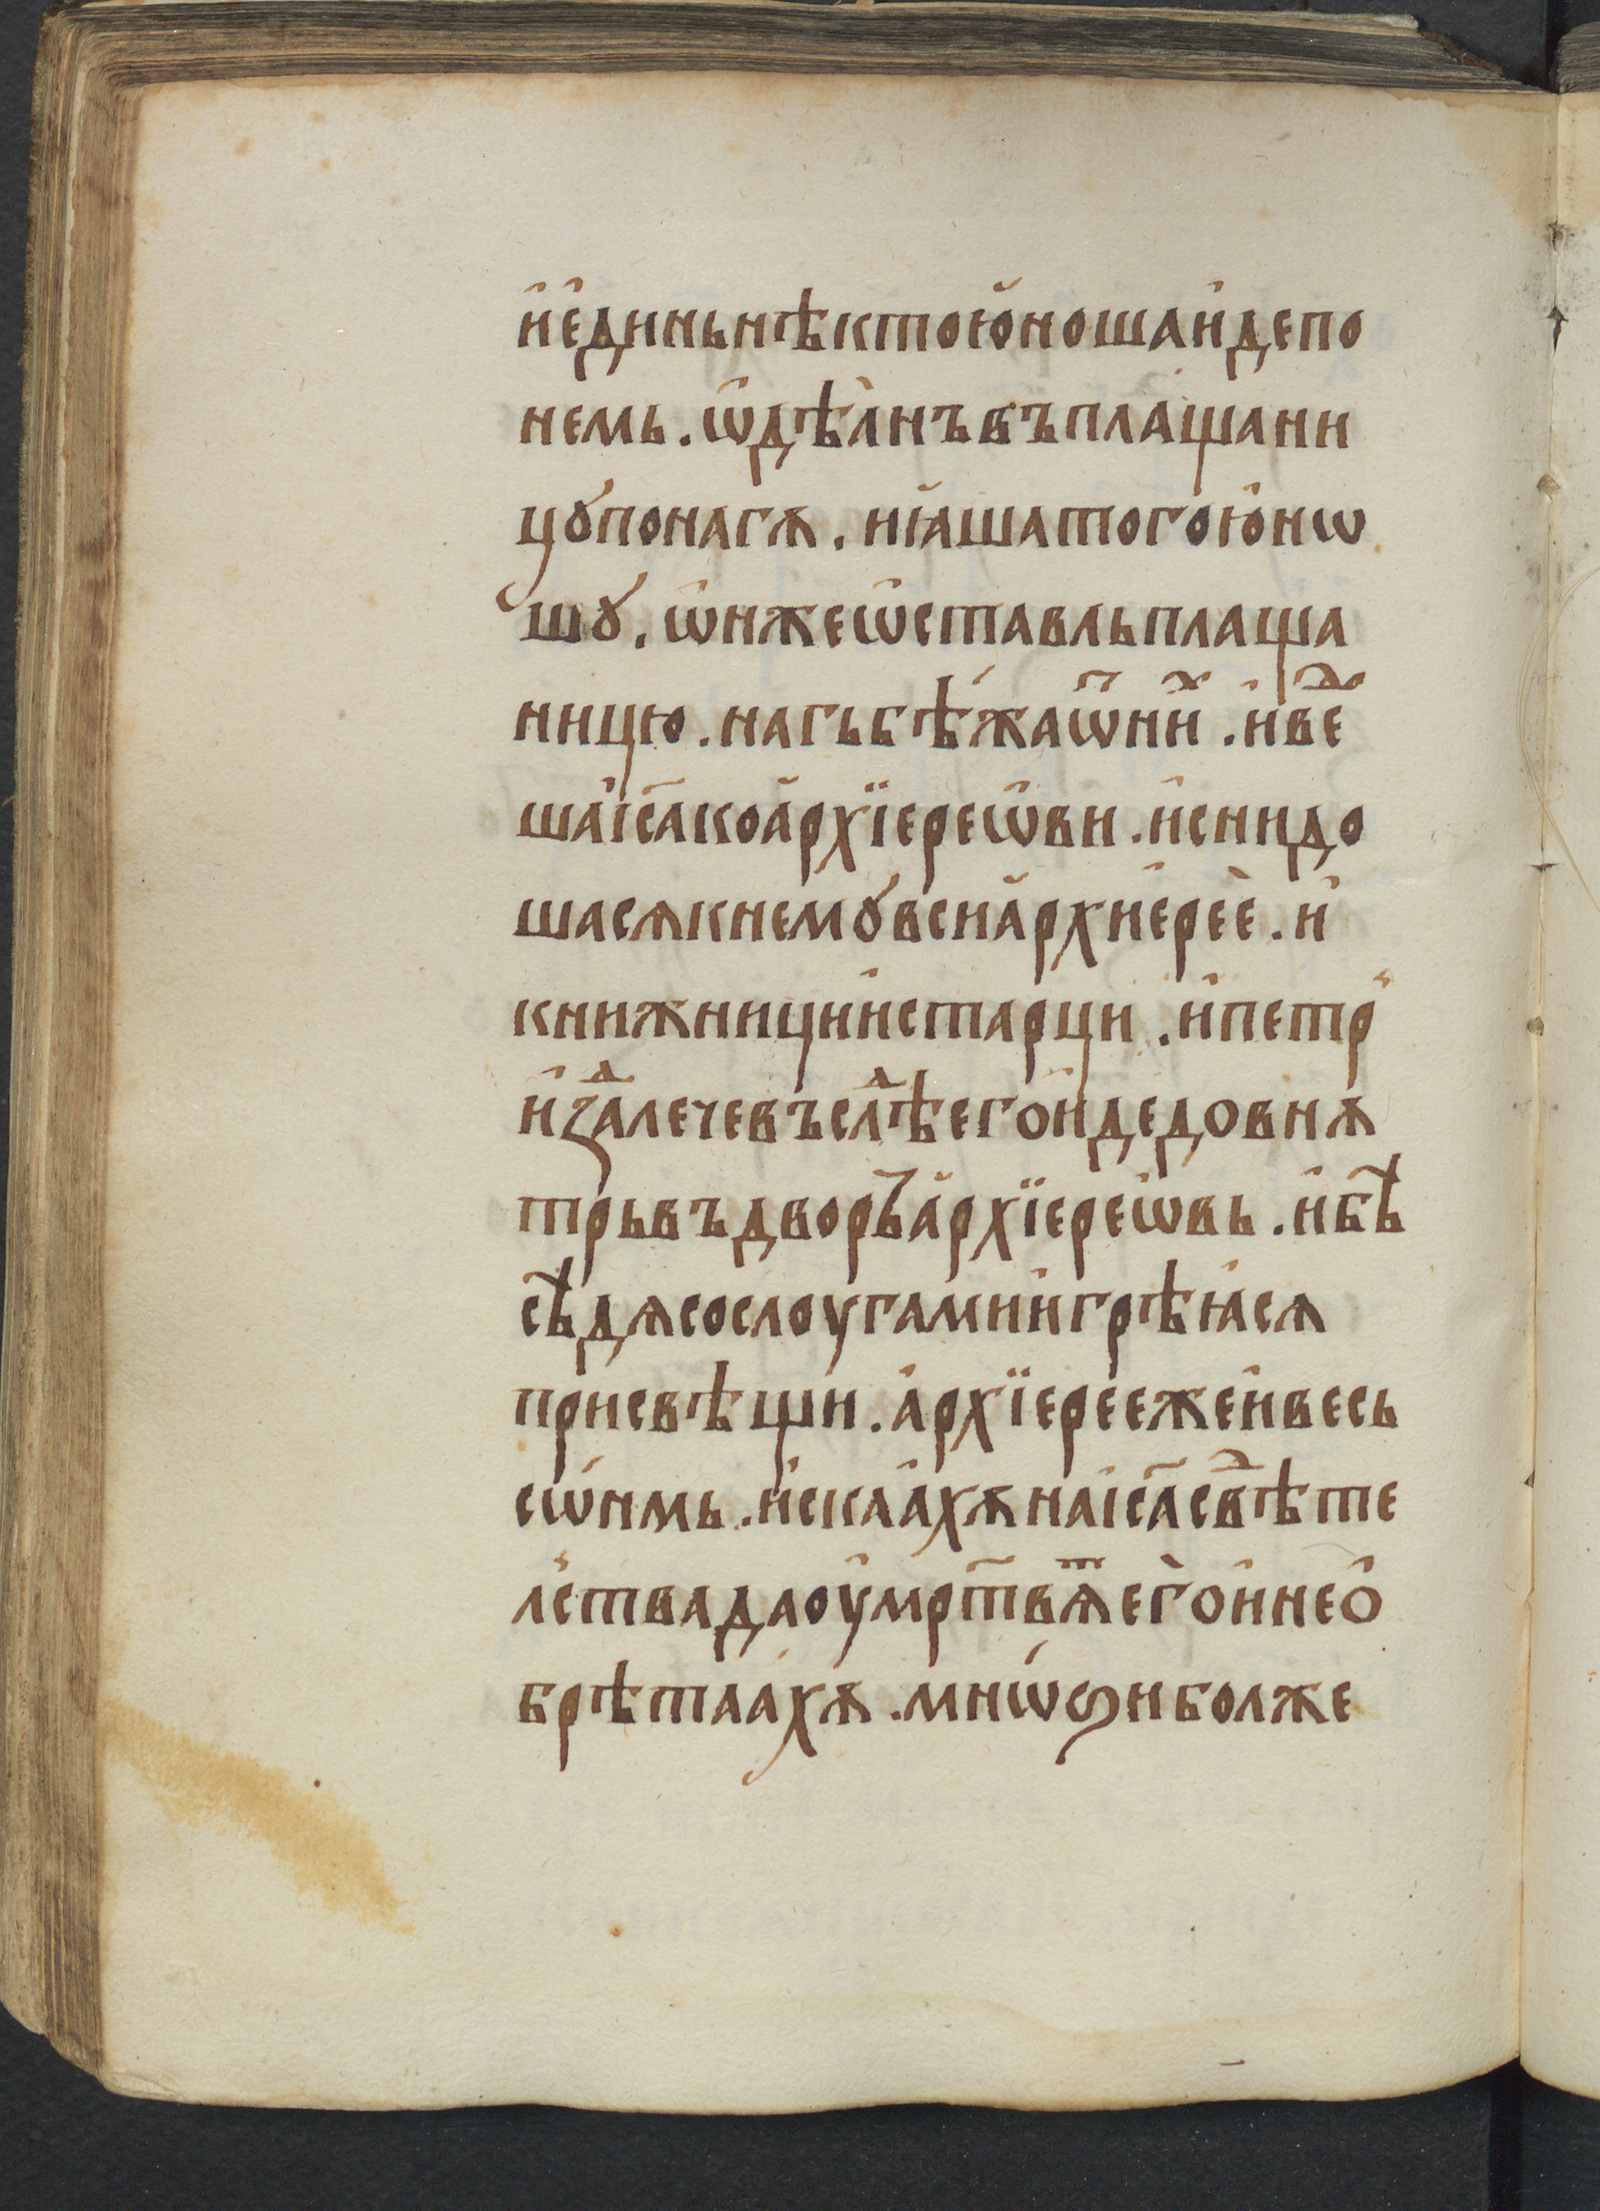 и҆е҆диньнѣктою҆ношаи҆депо
немь. ѡ҆дѣа҆нъвъплащани
цꙋпонагѧ. нꙗ҆шатогою҆нѡ
шꙋ. ѡ҆нжеѡ҆ставльплаща
ницю. нагьбѣжаѿниⷯ. и҆веⷣ
шаі҆с҃акоа҆рхїереѡ҆ви. и҆снидо
шасѧкнемꙋвсиа҆рхие҆рее. и҆
книжници҆истарци. и҆петр̾
и҆ꙁⷣалечевъслⷣѣегои҆дедовнѧ
трьвъдворъа҆рхїереѡ҆вь. и҆бѣ
сѣдѧсослоугамии҆грѣꙗ҆сѧ
присвѣщи. а҆рхїереежеи҆весь
сѡ҆нмь. и҆скаа҆хѫнаіс҃асвⷣѣте
л̾ствадаоу҆мртвѧⷮегои҆нео҆
брѣтаахѫ. мнѡꙃиболже